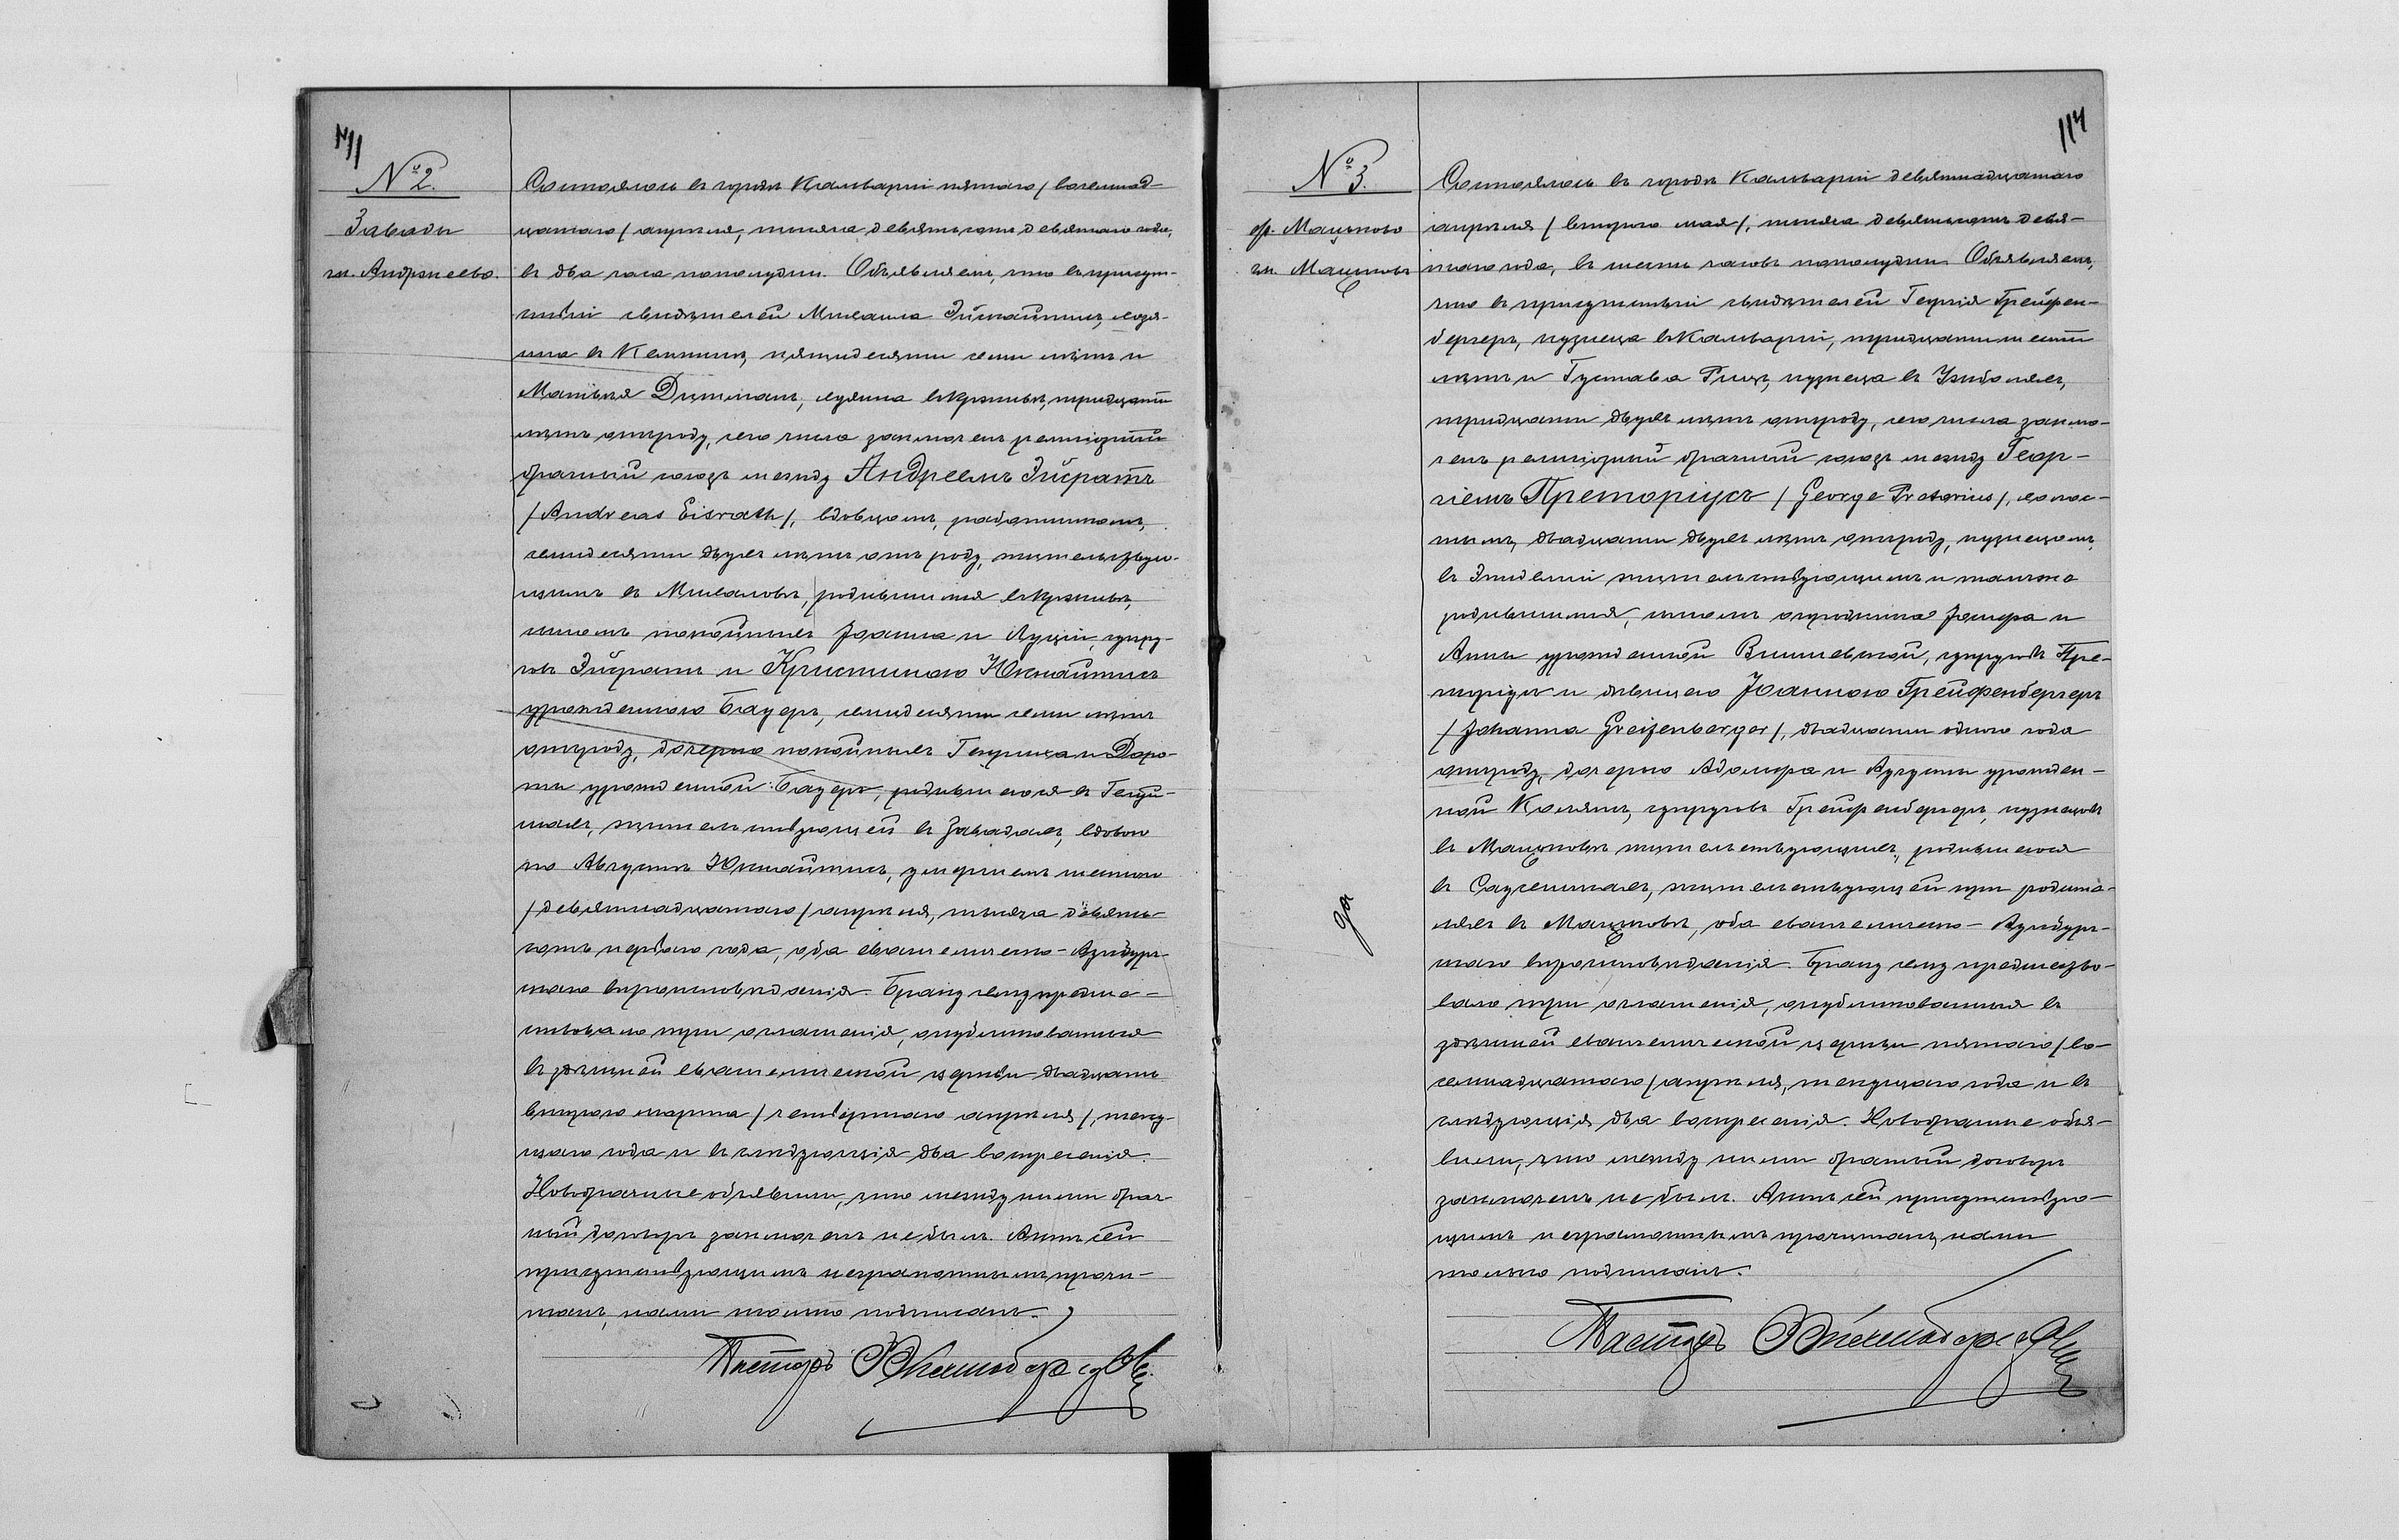 № 2.
Заводы
гм. Андржеево.
Состоялось въ городѣ Кальваріи пятаго /восемнад-
цатаго/ апрѣля, тысяча девятьсотъ девятаго года,
въ два часа пополудни. Объявляемъ, что въ присут-
ствіи свидѣтелей Михаила
пятидесяти семи лѣтъ и
тридцати
лѣтъ отъ роду, сего числа заключенъ религіозный
брачный союзъ между Андреемъ Эйсратъ
/Andreas Eisrath/, вдовцомъ, работникомъ,
семидесяти двухъ лѣтъ отъ роду, жительствую-
щимъ въ Михаловѣ, родившимся
сыномъ покойныхъ Іоанна и Луціи, супру-
говъ Эйсратъ и Христиною Юкнайтисъ
урожденною Бауеръ, семидесяти семи лѣтъ
отъ роду, дочерью покойныхъ Генриха и Доро-
ты урожденной Бауеръ, родившеюся въ
жительствующей въ Заводахъ, вдовою
по Августѣ Юкнайтисъ, умершемъ шестого
/девятнадцатаго/ апрѣля, тысяча девять-
сотъ перваго года, оба евангелическо-Аугсбург-
скаго вѣроисповѣданія. Браку сему предше-
ствовало три оглашенія, опубликованныя
въ здѣшней евангелической церкви двадцать
второго марта /четвертаго апрѣля/, теку-
щаго года и въ слѣдующія два воскресенія.
Новобрачные объявили, что между ними брач-
ный договоръ заключенъ не былъ. Актъ сей
присутствующимъ неграмотнымъ прочи-
танъ, нами только подписанъ.
Пасторъ
114
№ 3.
ф. Мацково
гм. Мацковъ
да
Состоялось въ городѣ Кальваріи девятнадцатаго
апрѣля /второго мая/, тысяча девятьсотъ девя-
таго года, въ шесть часовъ пополудни. Объявляемъ,
что въ присутствіи свидѣтелей Георгія Грейфен-
бергеръ, кузнеца въ Кальваріи, тридцати шести
лѣтъ и Густава кузнеца въ
тридцати двухъ лѣтъ отъ роду, сего числа заклю-
ченъ религіозный брачный союзъ между Геор-
гіемъ Преторіусъ /George Pretorius/, холос-
тымъ, двадцати двухъ лѣтъ отъ роду, кузнецомъ,
въ жительствующимъ и тамъ же
родившимся, сыномъ огородника Іосифа и
Анны урожденной Вишневской, супруговъ Пре-
торіусъ и дѣвицею Іоанною Грейфенбергеръ
/Johanna Greifenberger/, двадцати одного года
отъ роду, дочерью Адольфа и Августы урожден-
ной супруговъ Грейфенбергеръ, кузнецовъ
въ Мацковѣ жительствующихъ, родившеюся
въ жительствующей при родите-
ляхъ въ Мацковѣ, оба евангелическо-Аугсбург-
скаго вѣроисповѣданія. Браку сему предшество-
вало три оглашенія, опубликованныя въ
здѣшней евангелической церкви пятаго /во-
семнадцатаго/ апрѣля, текущаго года и въ
слѣдующія два воскресенія. Новобрачные объя-
вили, что между ними брачный договоръ
заключенъ не былъ. Актъ сей присутствую-
щимъ неграмотнымъ прочитанъ, нами
только подписанъ.
Пасторъ